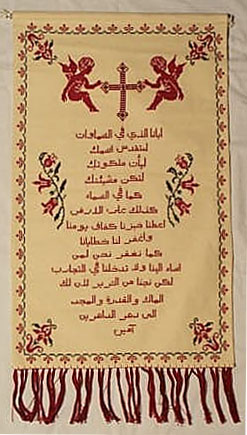 ابانا الذي في السماوات
ليتقدس اسمك
ليأت ملكوتك
لتكن مشيئتك
كما في السماء
كذلك على الارض
اعطنا خبزنا كفاف يومنا
واغفر لنا خطايانا
كما نغفر نحن لمن
اساء الينا ولا تدخلنا في التجارب
لكن نجنا من الشرير لان لك
الملك والقدرة والمجد
الى دهر الداهرين
آمين